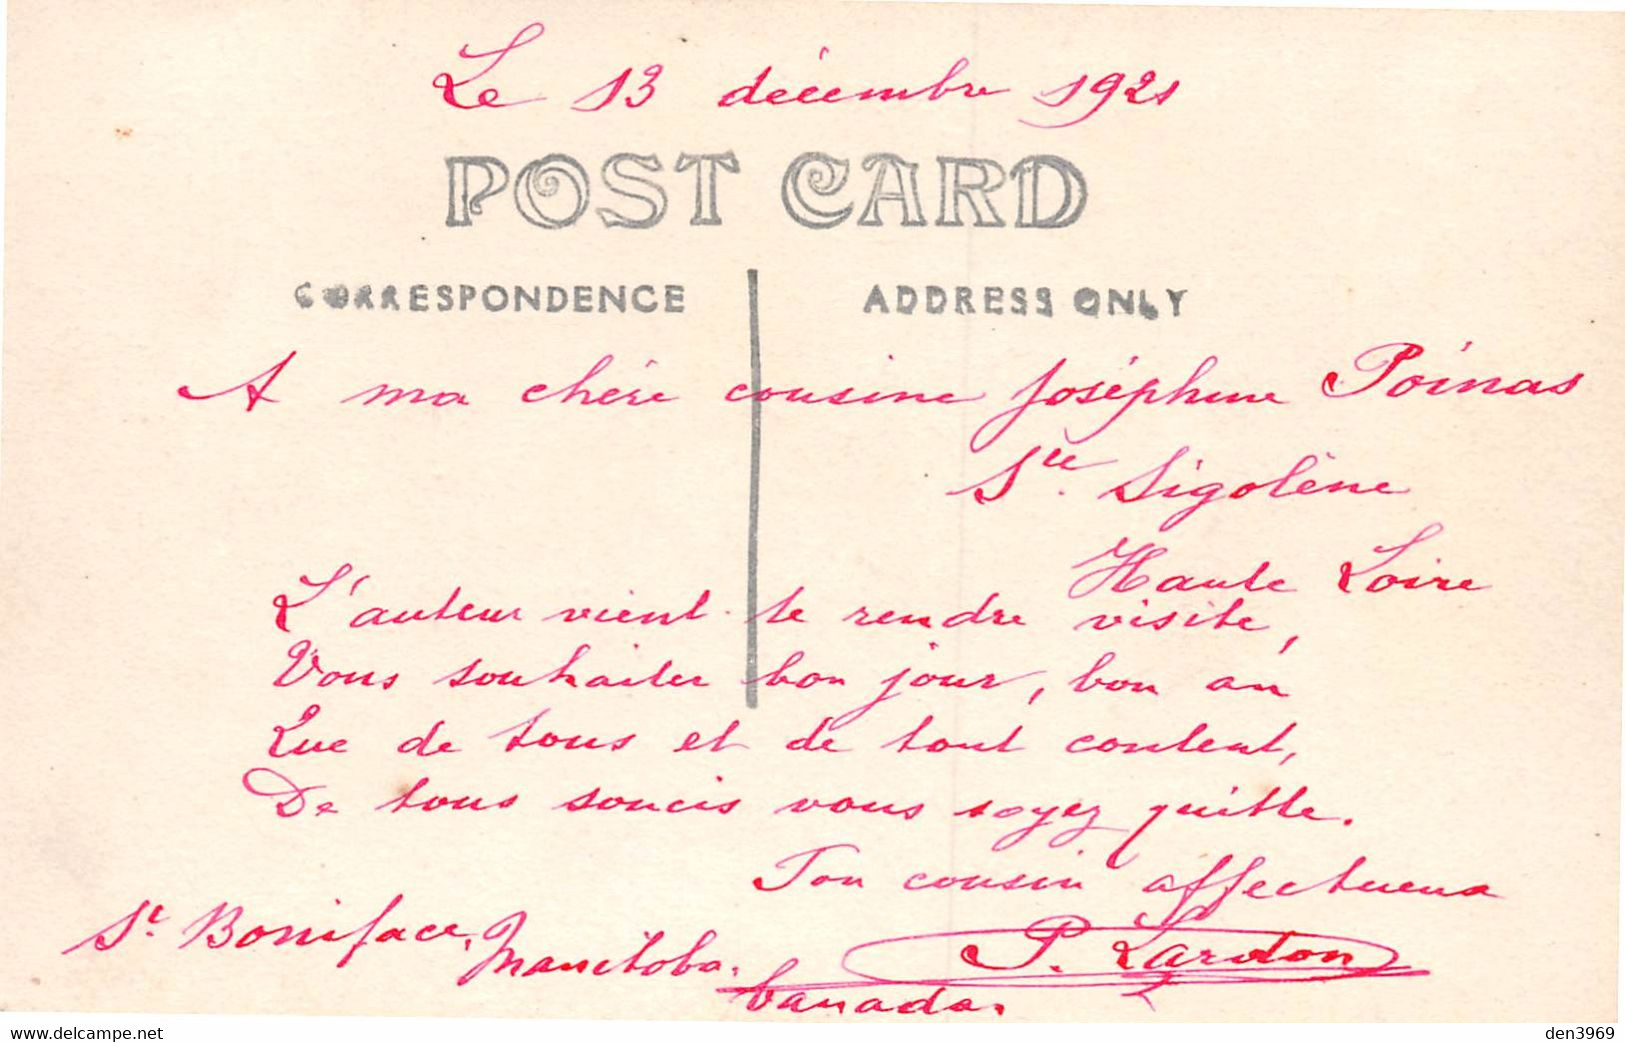 Le 13 décembre 1921
POST CARD
CORRESPONDENCE
ADDRESS ONLY
A ma chère cousine Joséphine Poinas
Ste. Sigolène
Haute Loire
L'auteur vient te rendre visite,
Vous souhaiter bon jour, bon an
Que de tous et de tout content,
De tous soucis vous soyez quitte.
Ton cousin affectueux
P. Lardon
St. Boniface, Manitoba.
Canada.
www.delcampe.net
den3969